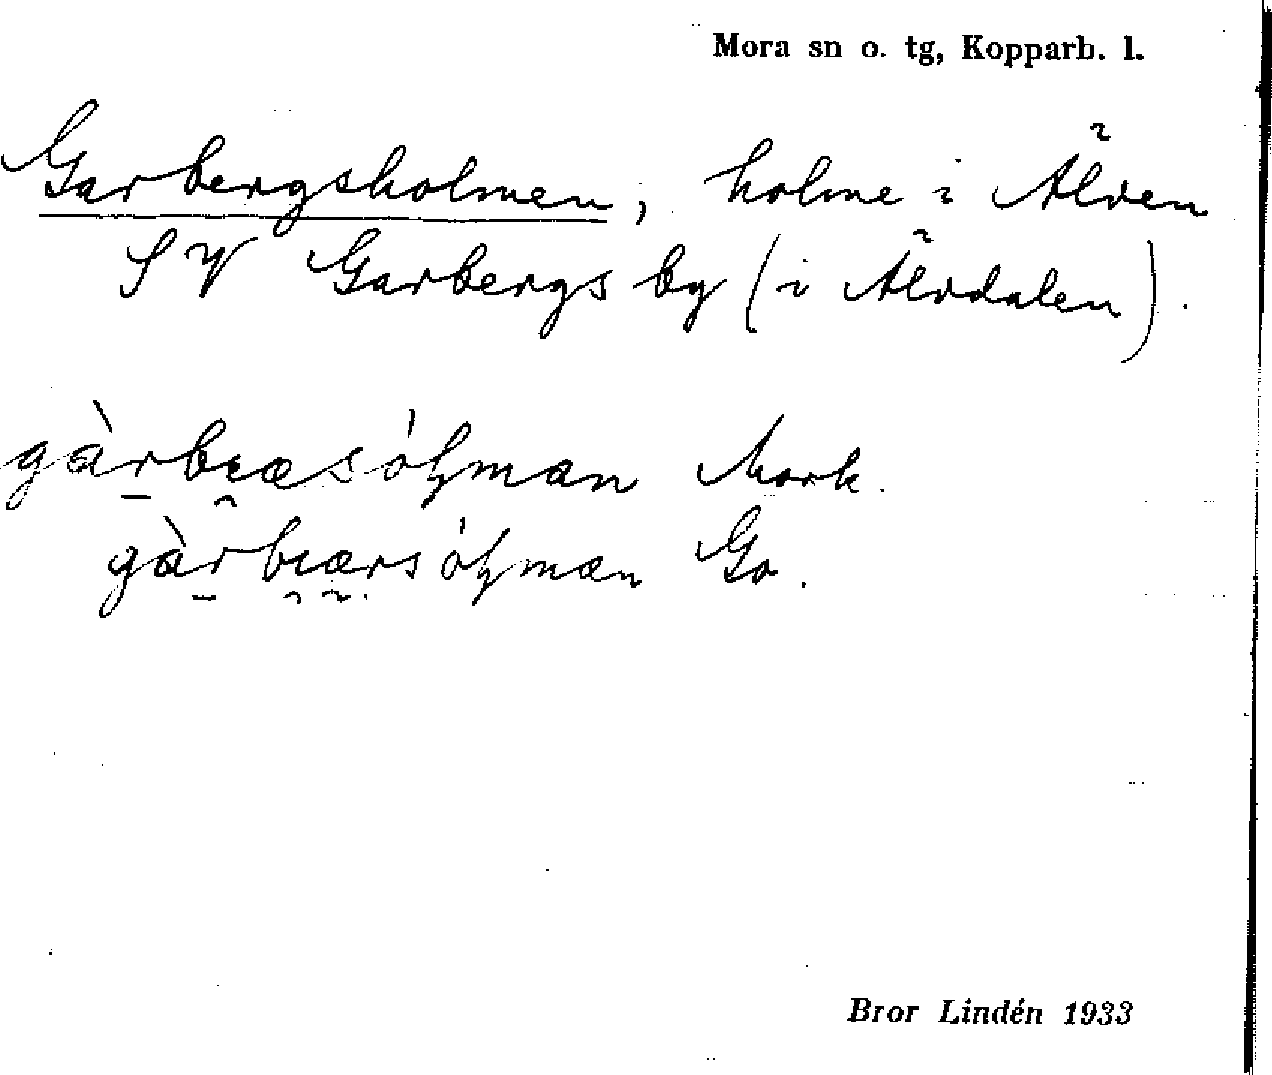 Mora sn o. tg, Kopparb. l.
Garbergsholmen, holme i Älven
SV Garbergs by (i Älvdalen).
gàr̲bɪ̯æsóɫmæn Mork.
gàr̲bɪ̯æ̯rsóɫmæn Go.
Bror Lindén 1933